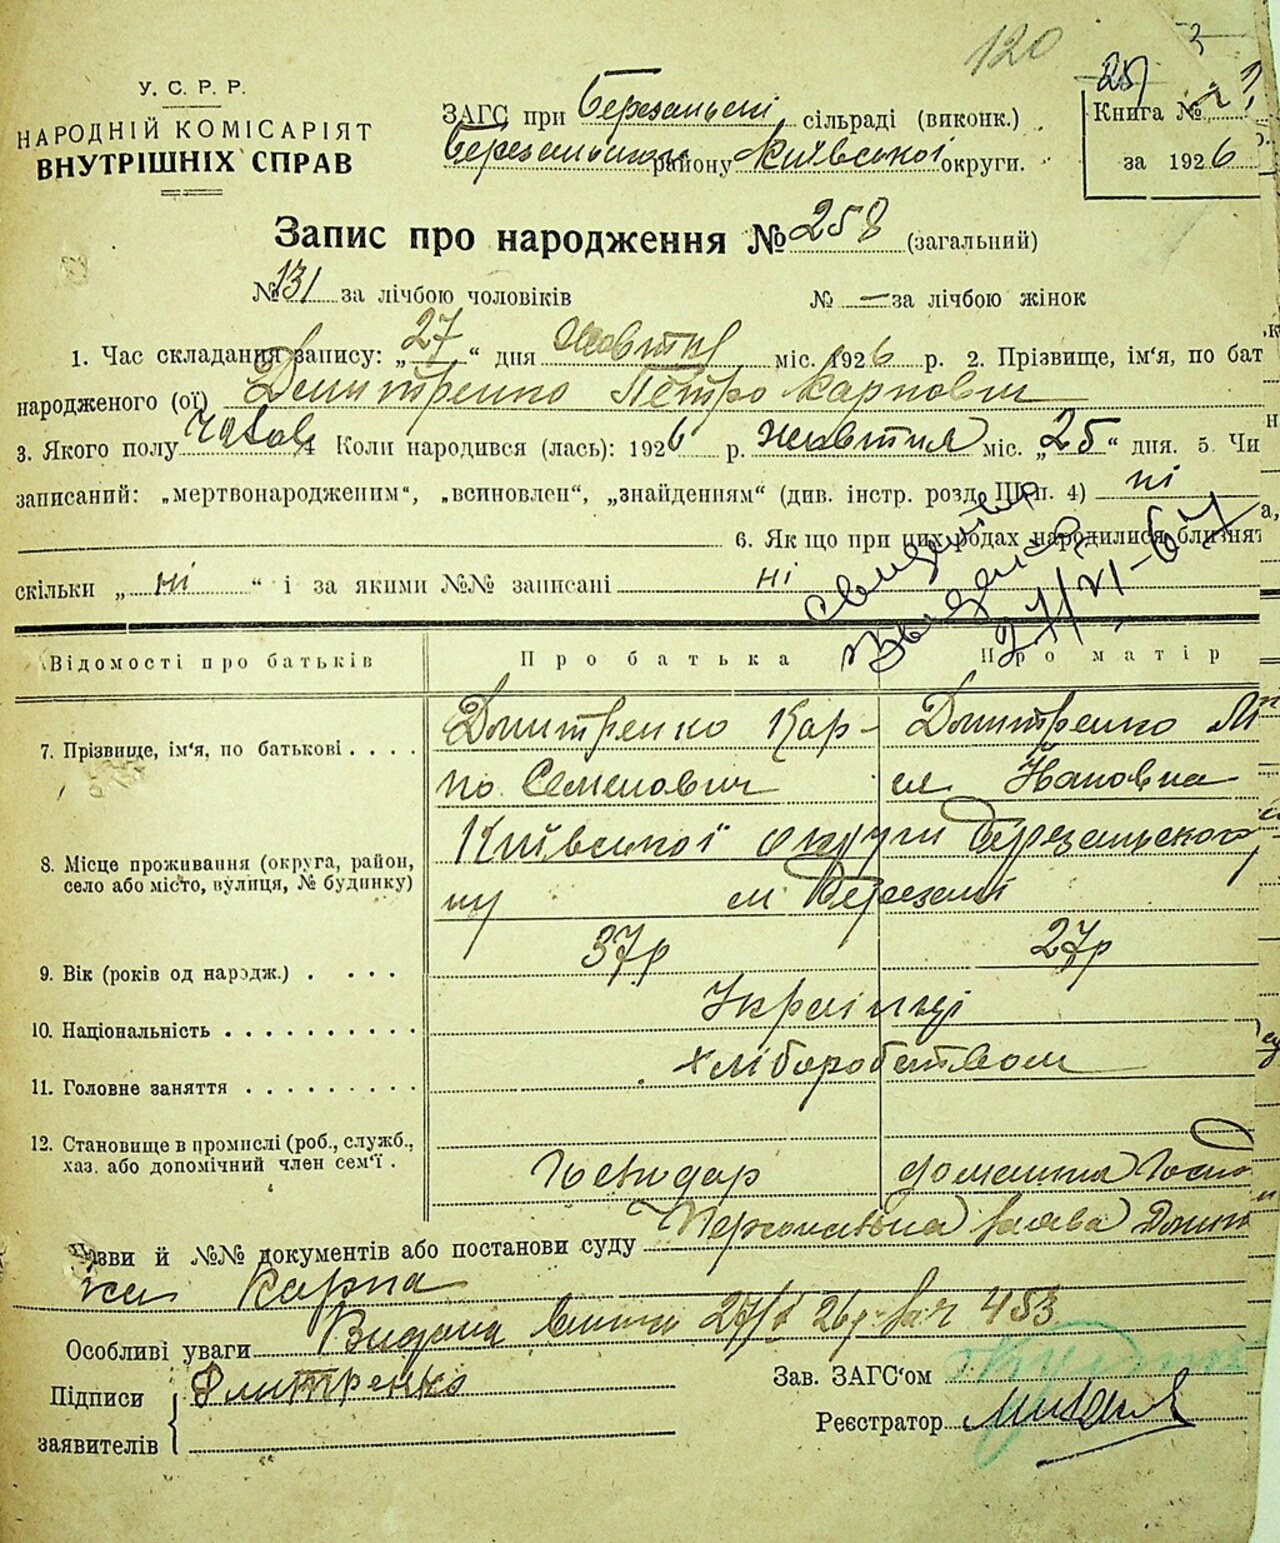 120
У. С. Р. Р.
НАРОДНІЙ КОМІСАРІЯТ
ВНУТРІШНІХ СПРАВ
ЗАГС при Березанській сільраді (виконк.)
Березанського району Київської округи.
Книга №
за 1926
Запис про народження № 258 (загальний)
№ 131 за лічбою чоловіків № — за лічбою жінок
1. Час складання запису: „27“ дня Жовтня міс. 1926 р. 2. Прізвище, ім‘я, по бат
народженого (ої) Дмитренко Петро Карпович
3. Якого полу чолов. 4 Коли народився (лась): 1926 р. жовтня міс. „25“ дня. 5. Чи
записаний: „мертвонародженим“, „всиновлен“, „знайденням“ (див. інстр. розд. ІІІ п. 4) ні
6. Якщо при цих родах народилися близнят
скільки „ні“ і за якими №№ записані ні
27/VI-67
Відомості про батьків Про батька Про матір
7. Прізвище, ім‘я, по батькові . . . . Дмитренко Кар- Дмитренко
по Семенович
8. Місце проживання (округа, район, Київської округи Березанського
село або місто, вулиця, № будинку) м Березані
9. Вік (років од народж.) . . . . 37р 27р
10. Національність . . . . . . . . . . Українці
11. Головне заняття . . . . . . . . . хліборобством
12. Становище в промислі (роб., служб.,
хаз. або допомічний член сем‘ї . Господар домашня Госпо
зви й №№ документів або постанови суду Персональна заява Дмит
Карпа
Особливі уваги Видана 453
Підписи Дмитренко Зав. ЗАГС‘ом
заявителів Реєстратор